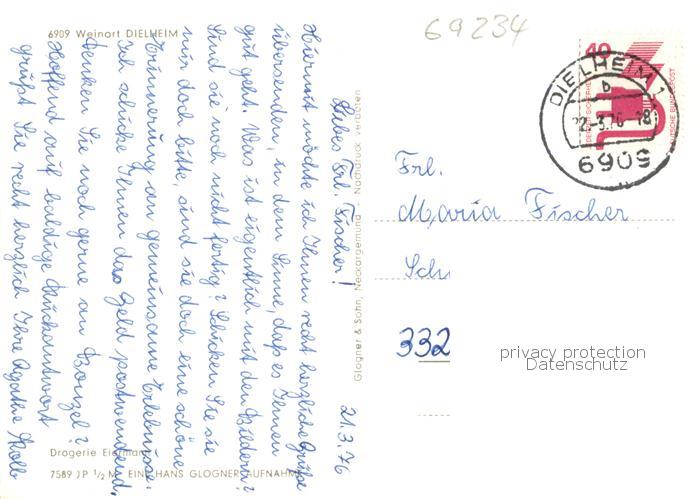 6909 Weinort DIELHEIM
69234
40
DEUTSCHE BUNDESPOST
DIELHEIM 1
b
22.-3.76-18
6909
Liebes Frl. Fischer!
21.3.76
Hiermit möchte ich Ihnen recht herzliche Grüße
übersenden, in dem Sinne, daß es Ihnen
gut geht. Was ist eigentlich mit den Bildern?
Sind sie noch nicht fertig? Schicken Sie sie
mir doch bitte, sind sie doch eine schöne
Erinnerung an gemeinsame Erlebnisse.
Ich schicke Ihnen das Geld postwendend.
Denken Sie noch gerne an Bonzel?
Hoffend auf baldige Rückantwort
grüßt Sie recht herzlich Ihre Agathe Kolb
Glogner & Sohn, Neckargemünd - Nachdruck verboten
Frl.
Maria Fischer
Sch
332
privacy protection
Datenschutz
Drogerie Eiermann
7589 JP 1/2 M EINE HANS GLOGNER AUFNAHME